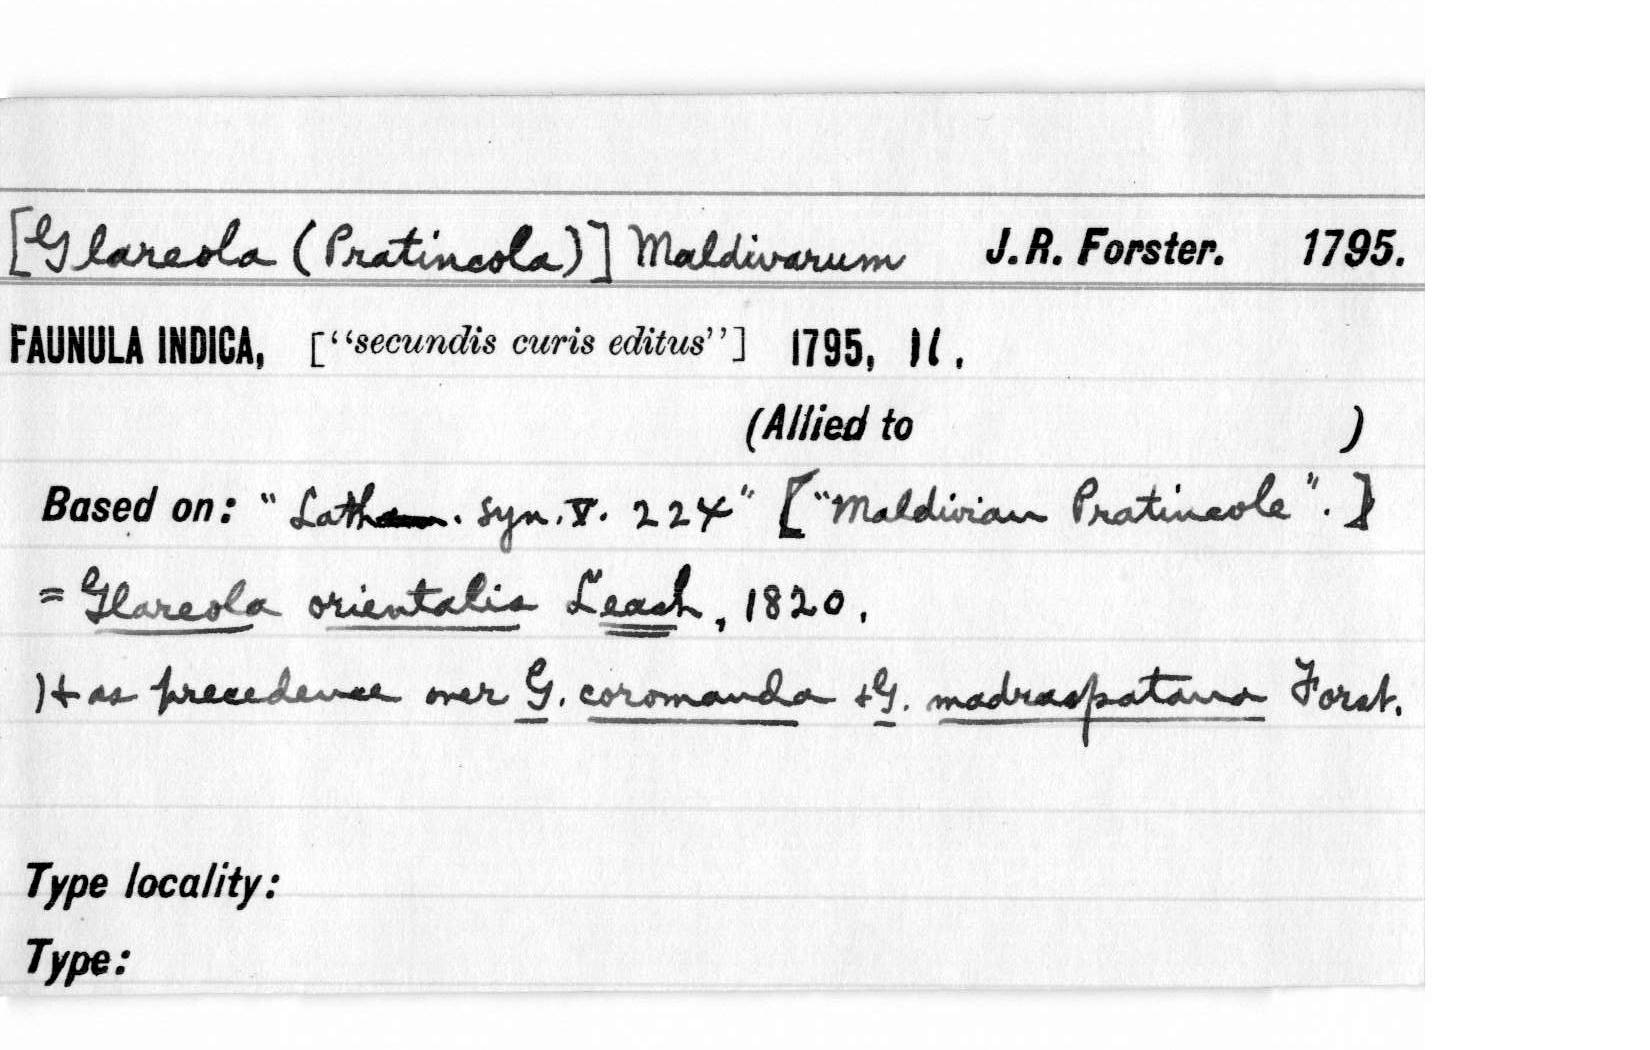 [Glareola (Pratincola)] Maldivarum J.R. Forster. 1795.
FAUNULA INDICA, ["secundis curis editus"] 1795, 11.
(Allied to )
Based on: "Latham. Syn. V. 224" ["Maldivian Pratincole".]
= Glareola orientalis Leach, 1820.
Has precedence over G. coromanda + G. madraspatana Forst.
Type locality:
Type: